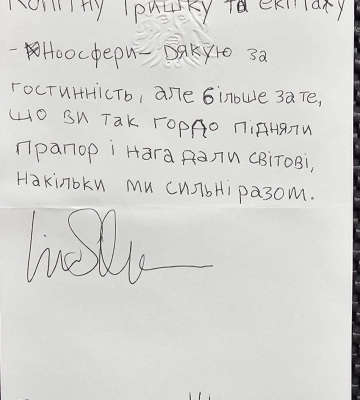 Гришку та екіпажу
- Ноосфери - дякую за
гостинність, але більше за те,
що ви так гордо підняли
прапор і нагадали світові,
накільки ми сильні разом.